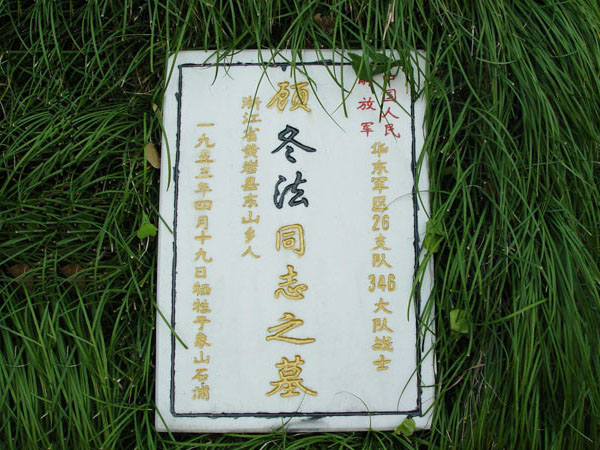 中国人民
解放军
华东军区26支队346大队战士
顾冬法同志之墓
浙江省黄岩县东山乡人
一九五三年四月十九日牺牲于象山石浦